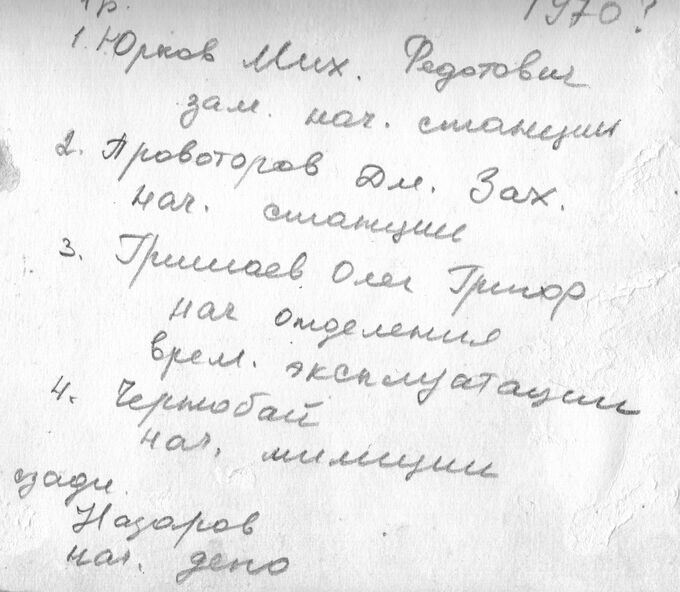 1970?
1. Юрков Мих. Федотович
зам. нач. станции
2. Провоторов Дм. Зах.
нач. станции
3. Гришаев Олег Григор
нач отделения
врем. эксплуатации
4. Чернобай
нач. милиции
сзади.
Назаров
нач. депо